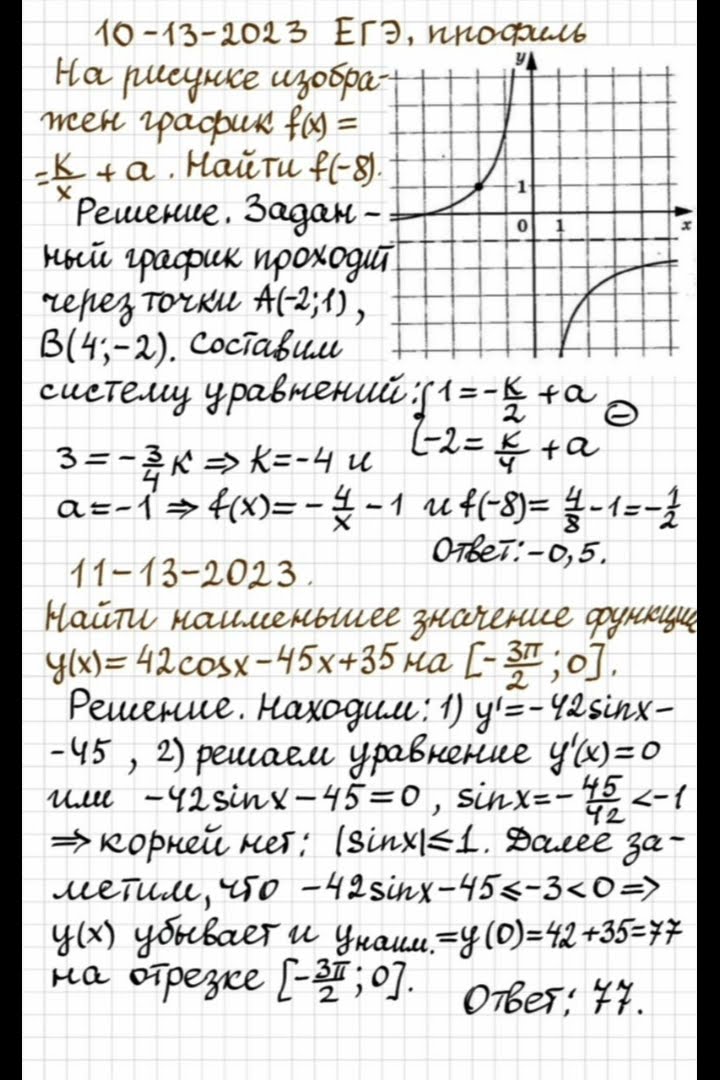 10-13-2023 ЕГЭ, профиль
На рисунке изобра-
жен график f(x) =
= k/x + a. Найти f(-8).
y
1
0 1 x
Решение. Задан-
ный график проходит
через точки A(-2;1),
B(4;-2). Составим
систему уравнений: { 1 = -k/2 + a
-2 = k/4 + a ⊖
3 = -3/4 k ⇒ k = -4 и
a = -1 ⇒ f(x) = -4/x - 1 и f(-8) = 4/8 - 1 = -1/2
Ответ: -0,5.
11-13-2023.
Найти наименьшее значение функции
y(x) = 42cosx - 45x + 35 на [-3π/2; 0].
Решение. Находим: 1) y' = -42sinx -
-45, 2) решаем уравнение y'(x) = 0
или -42sinx - 45 = 0, sinx = -45/42 < -1
⇒ корней нет: |sinx| ≤ 1. Далее за-
метим, что -42sinx - 45 ≤ -3 < 0 ⇒
y(x) убывает и yнаим. = y(0) = 42 + 35 = 77
на отрезке [-3π/2; 0].
Ответ: 77.